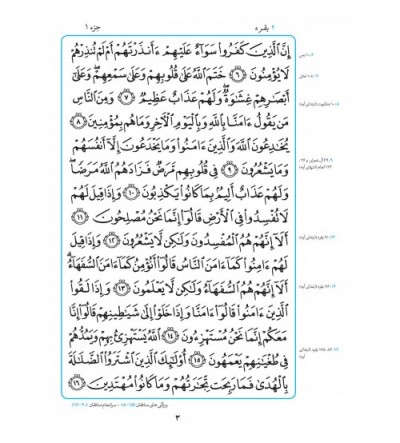 ۲ بقره
جزء ۱
إِنَّ الَّذِينَ كَفَرُوا سَوَاءٌ عَلَيْهِمْ ءَأَنذَرْتَهُمْ أَمْ لَمْ تُنذِرْهُمْ
لَا يُؤْمِنُونَ ﴿٦﴾ خَتَمَ اللَّهُ عَلَىٰ قُلُوبِهِمْ وَعَلَىٰ سَمْعِهِمْ وَعَلَىٰ
أَبْصَارِهِمْ غِشَاوَةٌ وَلَهُمْ عَذَابٌ عَظِيمٌ ﴿٧﴾ وَمِنَ النَّاسِ
مَن يَقُولُ ءَامَنَّا بِاللَّهِ وَبِالْيَوْمِ الْآخِرِ وَمَا هُم بِمُؤْمِنِينَ ﴿٨﴾
يُخَادِعُونَ اللَّهَ وَالَّذِينَ ءَامَنُوا وَمَا يَخْدَعُونَ إِلَّا أَنفُسَهُمْ
وَمَا يَشْعُرُونَ ﴿٩﴾ فِي قُلُوبِهِم مَّرَضٌ فَزَادَهُمُ اللَّهُ مَرَضًا
وَلَهُمْ عَذَابٌ أَلِيمٌ بِمَا كَانُوا يَكْذِبُونَ ﴿١٠﴾ وَإِذَا قِيلَ لَهُمْ
لَا تُفْسِدُوا فِي الْأَرْضِ قَالُوا إِنَّمَا نَحْنُ مُصْلِحُونَ ﴿١١﴾
أَلَا إِنَّهُمْ هُمُ الْمُفْسِدُونَ وَلَٰكِن لَّا يَشْعُرُونَ ﴿١٢﴾ وَإِذَا قِيلَ
لَهُمْ ءَامِنُوا كَمَا ءَامَنَ النَّاسُ قَالُوا أَنُؤْمِنُ كَمَا ءَامَنَ السُّفَهَاءُ
أَلَا إِنَّهُمْ هُمُ السُّفَهَاءُ وَلَٰكِن لَّا يَعْلَمُونَ ﴿١٣﴾ وَإِذَا لَقُوا
الَّذِينَ ءَامَنُوا قَالُوا ءَامَنَّا وَإِذَا خَلَوْا إِلَىٰ شَيَاطِينِهِمْ قَالُوا إِنَّا
مَعَكُمْ إِنَّمَا نَحْنُ مُسْتَهْزِءُونَ ﴿١٤﴾ اللَّهُ يَسْتَهْزِئُ بِهِمْ وَيَمُدُّهُمْ
فِي طُغْيَانِهِمْ يَعْمَهُونَ ﴿١٥﴾ أُولَٰئِكَ الَّذِينَ اشْتَرَوُا الضَّلَالَةَ
بِالْهُدَىٰ فَمَا رَبِحَت تِّجَارَتُهُمْ وَمَا كَانُوا مُهْتَدِينَ ﴿١٦﴾
۳